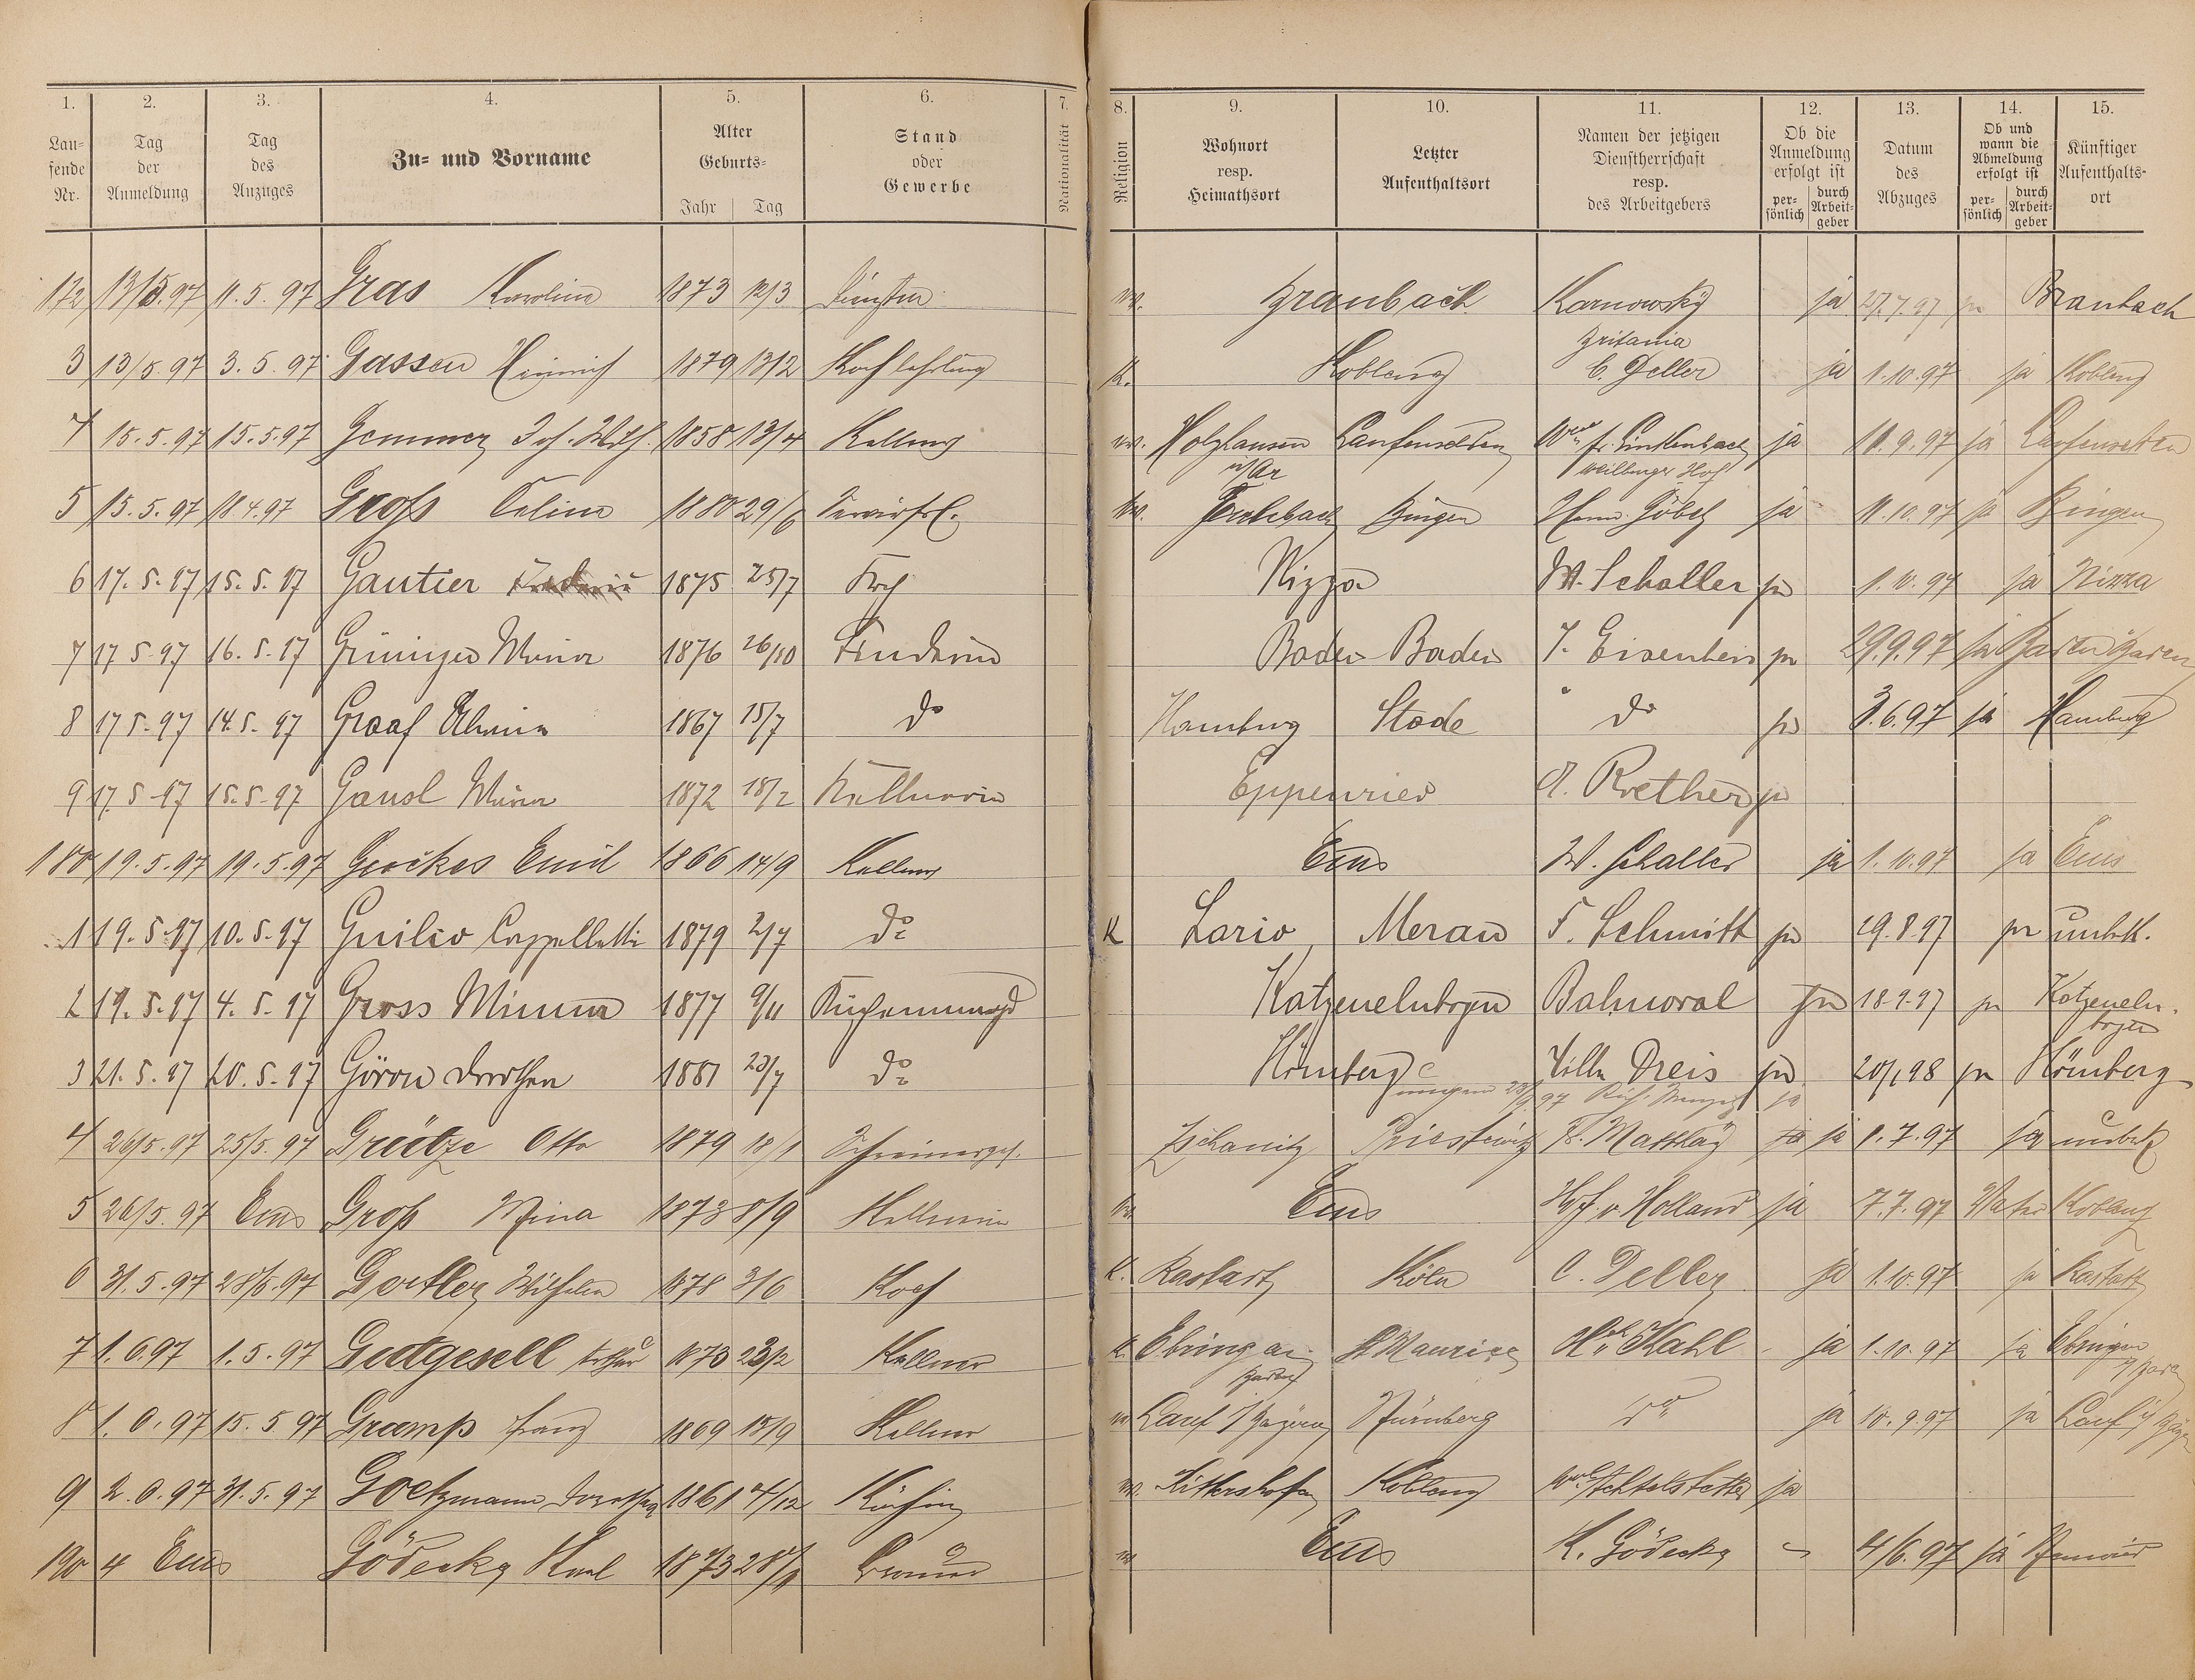 1. 2. 3. 4. 5. 6. 7. 8. 9. 10. 11. 12. 13. 14. 15.
Laufende Nr. | Tag der Anmeldung | Tag des Anzuges | Zu- und Vorname | Alter Geburts- Jahr | Tag | Stand oder Gewerbe | Nationalität | Religion | Wohnort resp. Heimathsort | Letzter Aufenthaltsort | Namen der jetzigen Dienstherrschaft resp. des Arbeitgebers | Ob die Anmeldung erfolgt ist persönlich | durch Arbeitgeber | Datum des Abzuges | Ob und wann die Abmeldung erfolgt ist persönlich | durch Arbeitgeber | Künftiger Aufenthaltsort
172 13/5.97 11.5.97 Gras Karoline 1873 12/3 w. Braubach Karnowsky ja 27.7.97 ja Braubach
3 13/5.97 3.5.97 Gassen Heinrich 1879 13/2 Kochlehrling K. Koblenz Britania C. Deller ja 1.10.97 ja Koblenz
4 15.5.97 15.5.97 Gemmer Joh. Wilh. 1858 13/4 Kellner Holzhausen Laufenselden Linkenbach Weilburger Hof ja 11.9.97 ja Laufenselden
5 15.5.97 18.4.97 Groß 1880 29/6 Bingen Herm. Göbel ja 11.10.97 ja Bingen
6 17.5.97 15.5.97 Gautier 1875 25/7 Koch Nizza W. Schaller ja 1.10.97 ja Nizza
7 17.5.97 16.5.97 Grüninger Mina 1876 26/10 Baden-Baden J. Eisenbeis ja 29.9.97 ja Baden Baden
8 17.5.97 14.5.97 Graaf 1867 15/7 do Hamburg Stade do ja 3.6.97 ja Hamburg
9 17.5.97 15.5.97 Gausl Mina 1872 18/2 Kellnerin Eppenrod A. Roether ja
180 19.5.97 19.5.97 Gerckes Emil 1866 14/9 Kellner Ems W. Schaller ja 1.10.97 ja Ems
1 19.5.97 10.5.97 Guilio Cappelletti 1879 2/7 do K Lario Meran F. Schmitt ja 29.8.97 ja unbk.
2 19.5.97 4.5.97 Gross Minna 1877 9/11 Küchenmagd Katzenelnbogen Balmoral ja 18.9.97 ja Katzenelnbogen
3 21.5.97 20.5.97 Dorothea 1881 23/7 do Hömberg Villa Dreis ja 20/1 98 ja Hömberg
4 26/5.97 25/5.97 Grütze Otto 1879 18/1 Schreinerges. Zschanitz Priestewitz F. Matthäy ja ja 1.7.97 ja unbek
5 26/5.97 Ems Groß Mina 1873 8/9 Kellnerin Ems Hof v. Holland ja 7.7.97 Vater Koblenz
6 31.5.97 28/5.97 Goettler Wilhelm 1878 3/6 Koch K. Rastatt Köln C. Deller ja 1.10.97 ja Rastatt
7 1.6.97 1.5.97 Gutgesell Arthur 1873 23/2 Kellner Ebringen Baden St Maurice Kahl ja 1.10.97 ja Ebringen i/Baden
8 1.6.97 15.5.97 Gramp Franz 1869 15/9 Kellner Lauf i/Bayern Nürnberg do ja 10.9.97 ja Lauf i/Bayern
9 2.6.97 31.5.97 Goetzmann Dorothea 1861 4/12 Köchin w. Rittershofen Koblenz Achtelstetter ja
190 4 Ems Gödecke Karl 1873 28/1 Ems K. Gödecke 4/6.97 ja